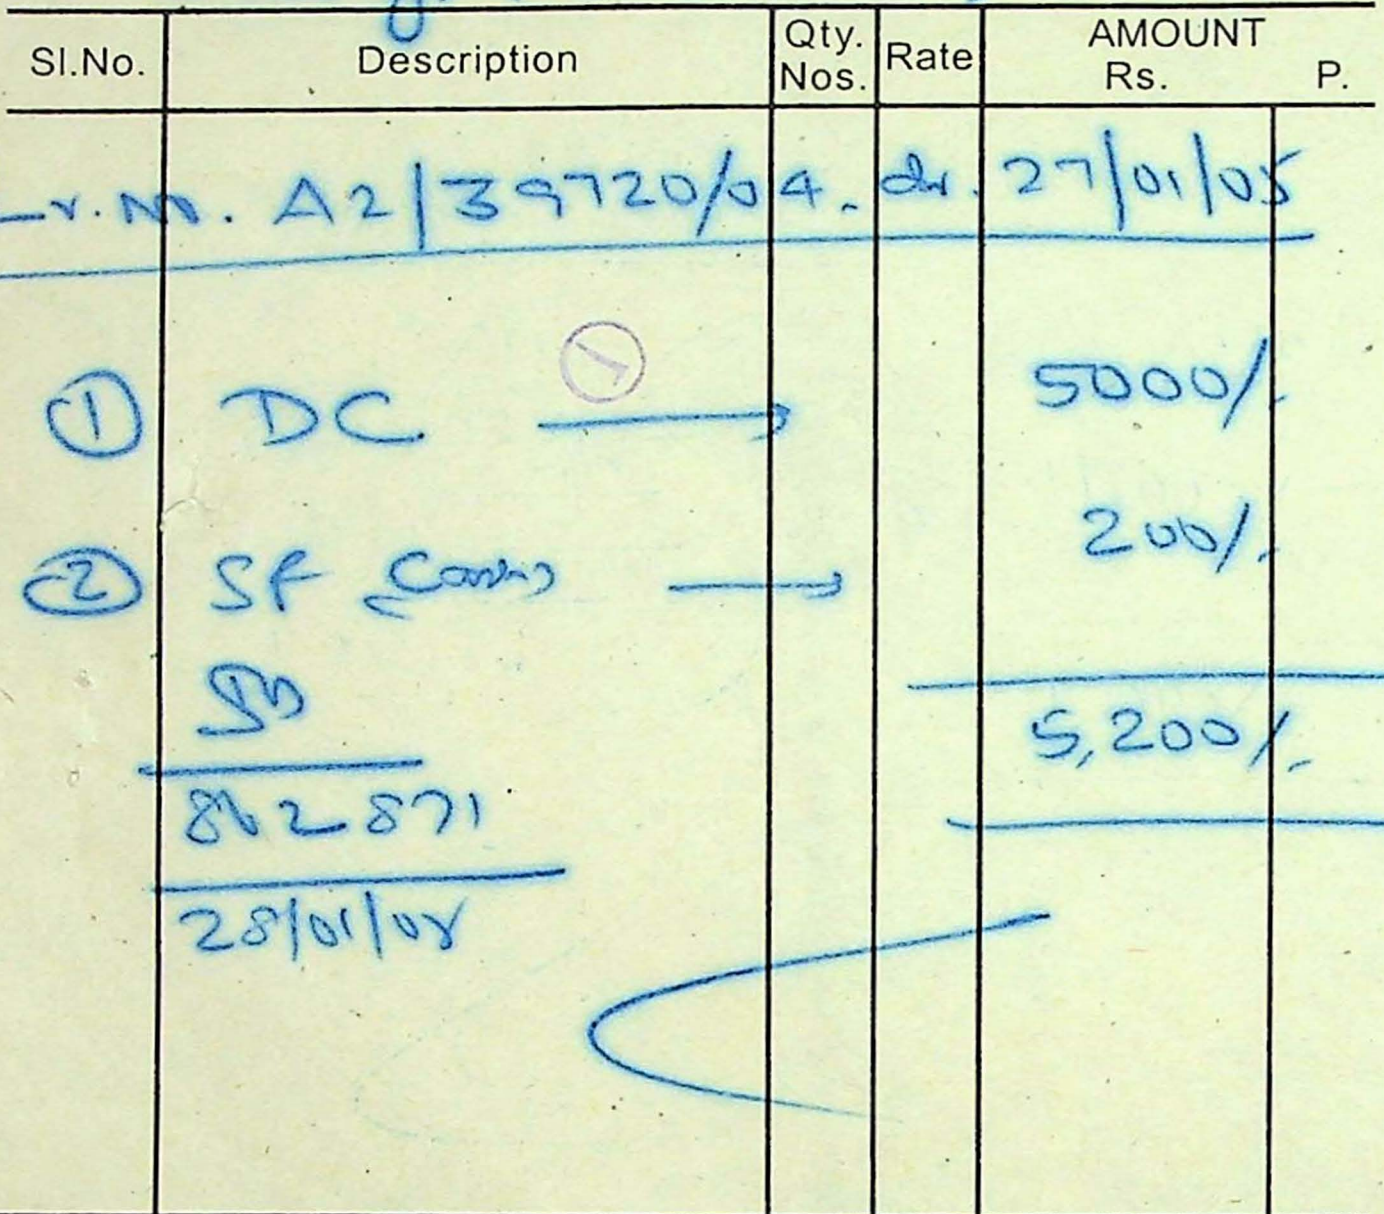 Sl.No. Description Qty. Nos. Rate AMOUNT Rs. P.
Lr. No. A2/39720/04. dt. 27/01/05
① DC → 5000/-
② SF → 200/-
5,200/-
862871
28/01/05